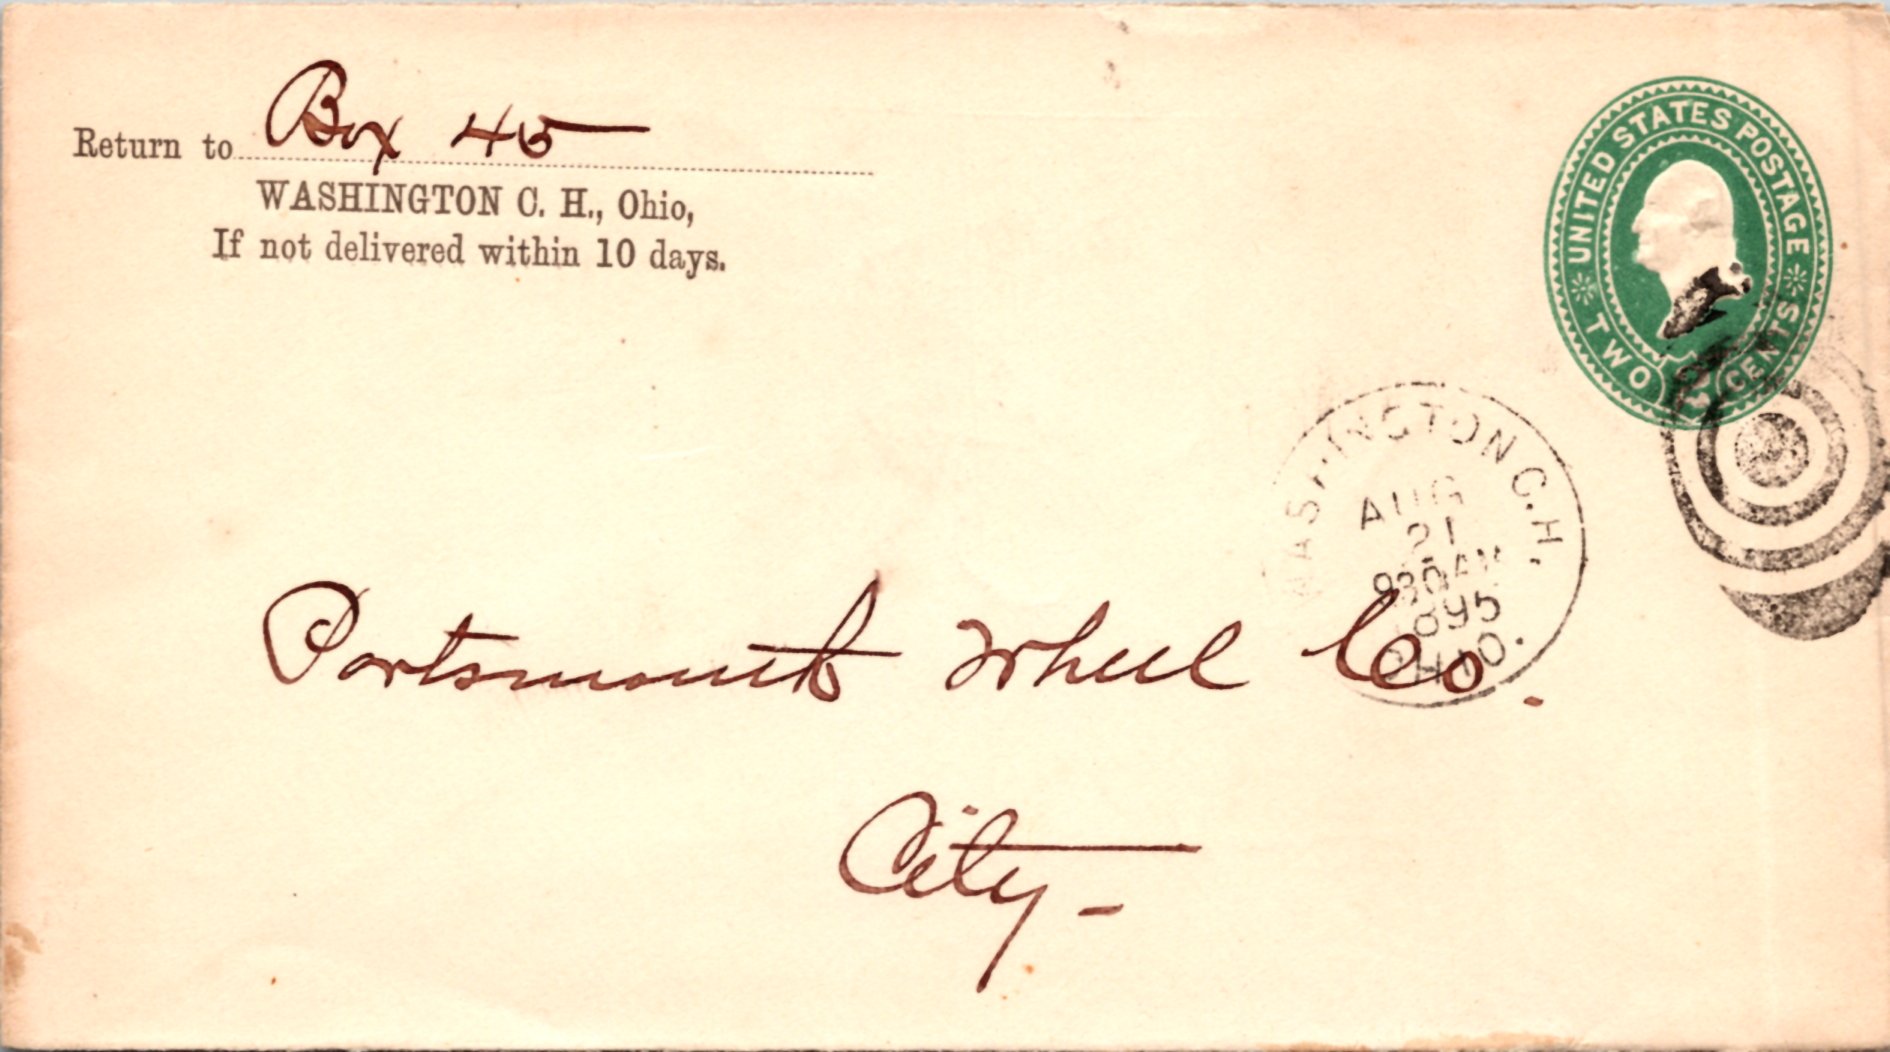 Return to Box 45
WASHINGTON C. H., Ohio,
If not delivered within 10 days.
UNITED STATES POSTAGE
TWO 2 CENTS
WASHINGTON C.H.,
AUG
21
930AM
1895
OHIO.
Portsmouth Wheel Co.
City -